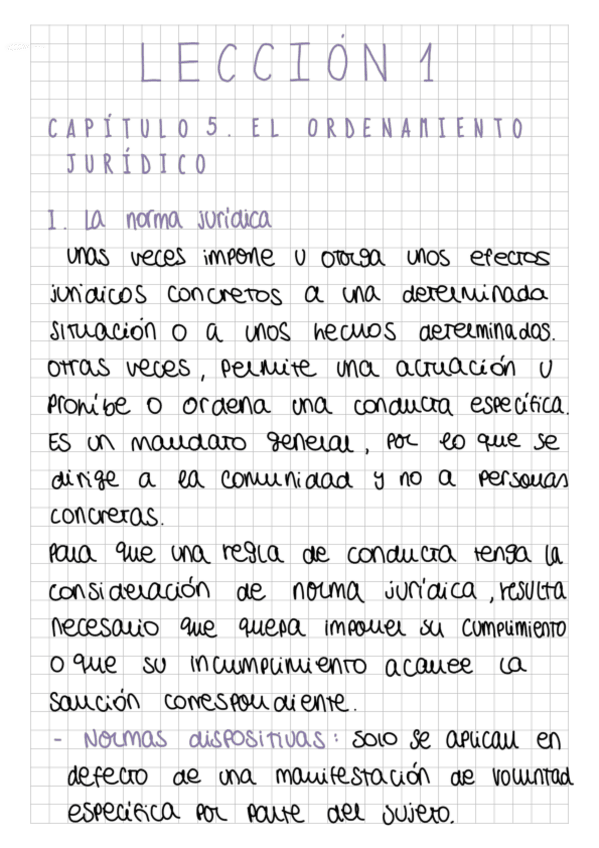 LECCIÓN 1
CAPÍTULO 5. EL ORDENAMIENTO
JURÍDICO
I. La norma jurídica
unas veces impone u otorga unos efectos
jurídicos concretos a una determinada
situación o a unos hechos determinados.
otras veces, permite una actuación u
prohíbe o ordena una conducta específica.
ES un mandato general, por lo que se
dirige a la comunidad y no a personas
concretas.
Para que una regla de conducta tenga la
consideración de norma jurídica, resulta
necesario que quepa imponer su cumplimiento
o que su incumplimiento acarree la
sanción correspondiente.
- Normas dispositivas: solo se aplican en
defecto de una manifestación de voluntad
específica por parte del sujeto.